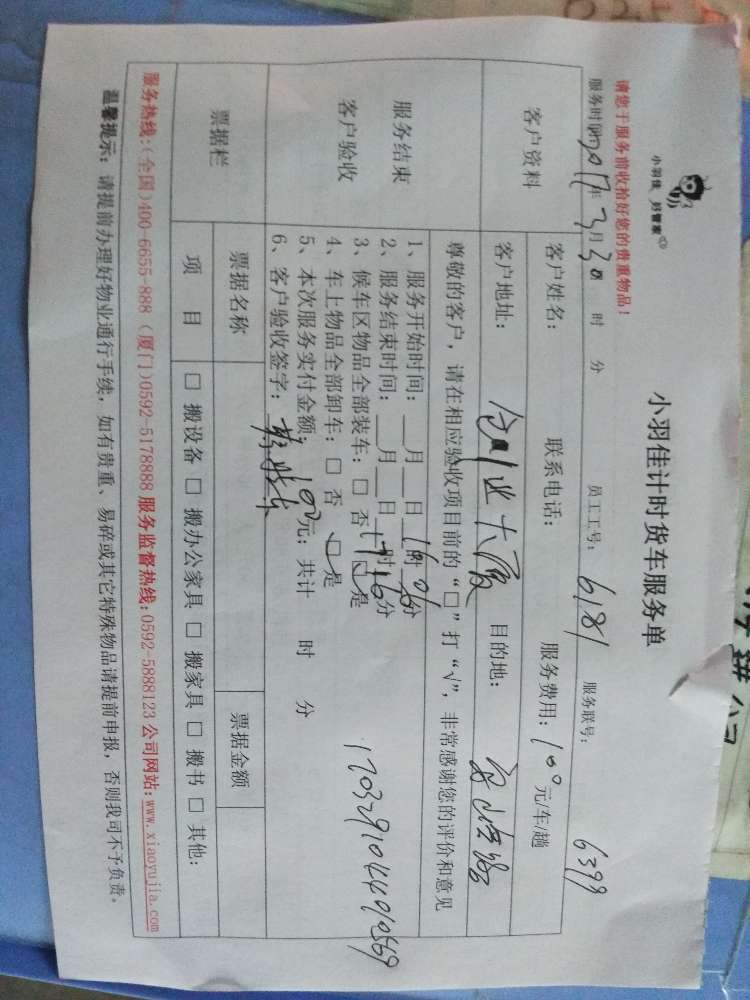 小羽佳 好管家
小羽佳计时货车服务单
请您于服务前收拾好您的贵重物品！
服务时间 2017年3月30 时 分 员工工号：6181 服务联号：6399
客户资料
客户姓名： 联系电话： 服务费用：100元/车/趟
客户地址： 大厦 目的地： 路
服务结束
客户验收
尊敬的客户，请在相应验收项目前的“□”打“√”，非常感谢您的评价和意见
1、服务开始时间：__月__日 16时06分
2、服务结束时间：__月__日 17时16分
3、候车区物品全部装车：□ 否 □是
4、车上物品全部卸车：□ 否 □是
5、本次服务实付金额：100元；共计 时 分
6、客户验收签字：
1703291044010569
票据栏
票据名称 票据金额
项 目 □ 搬设备 □ 搬办公家具 □ 搬家具 □ 搬书 □ 其他：
服务热线：(全国)400-6655-888 (厦门)0592-5178888 服务监督热线：0592-5888123 公司网站：www.xiaoyujia.com
温馨提示：请提前办理好物业通行手续，如有贵重、易碎或其它特殊物品请提前申报，否则我司不予负责。